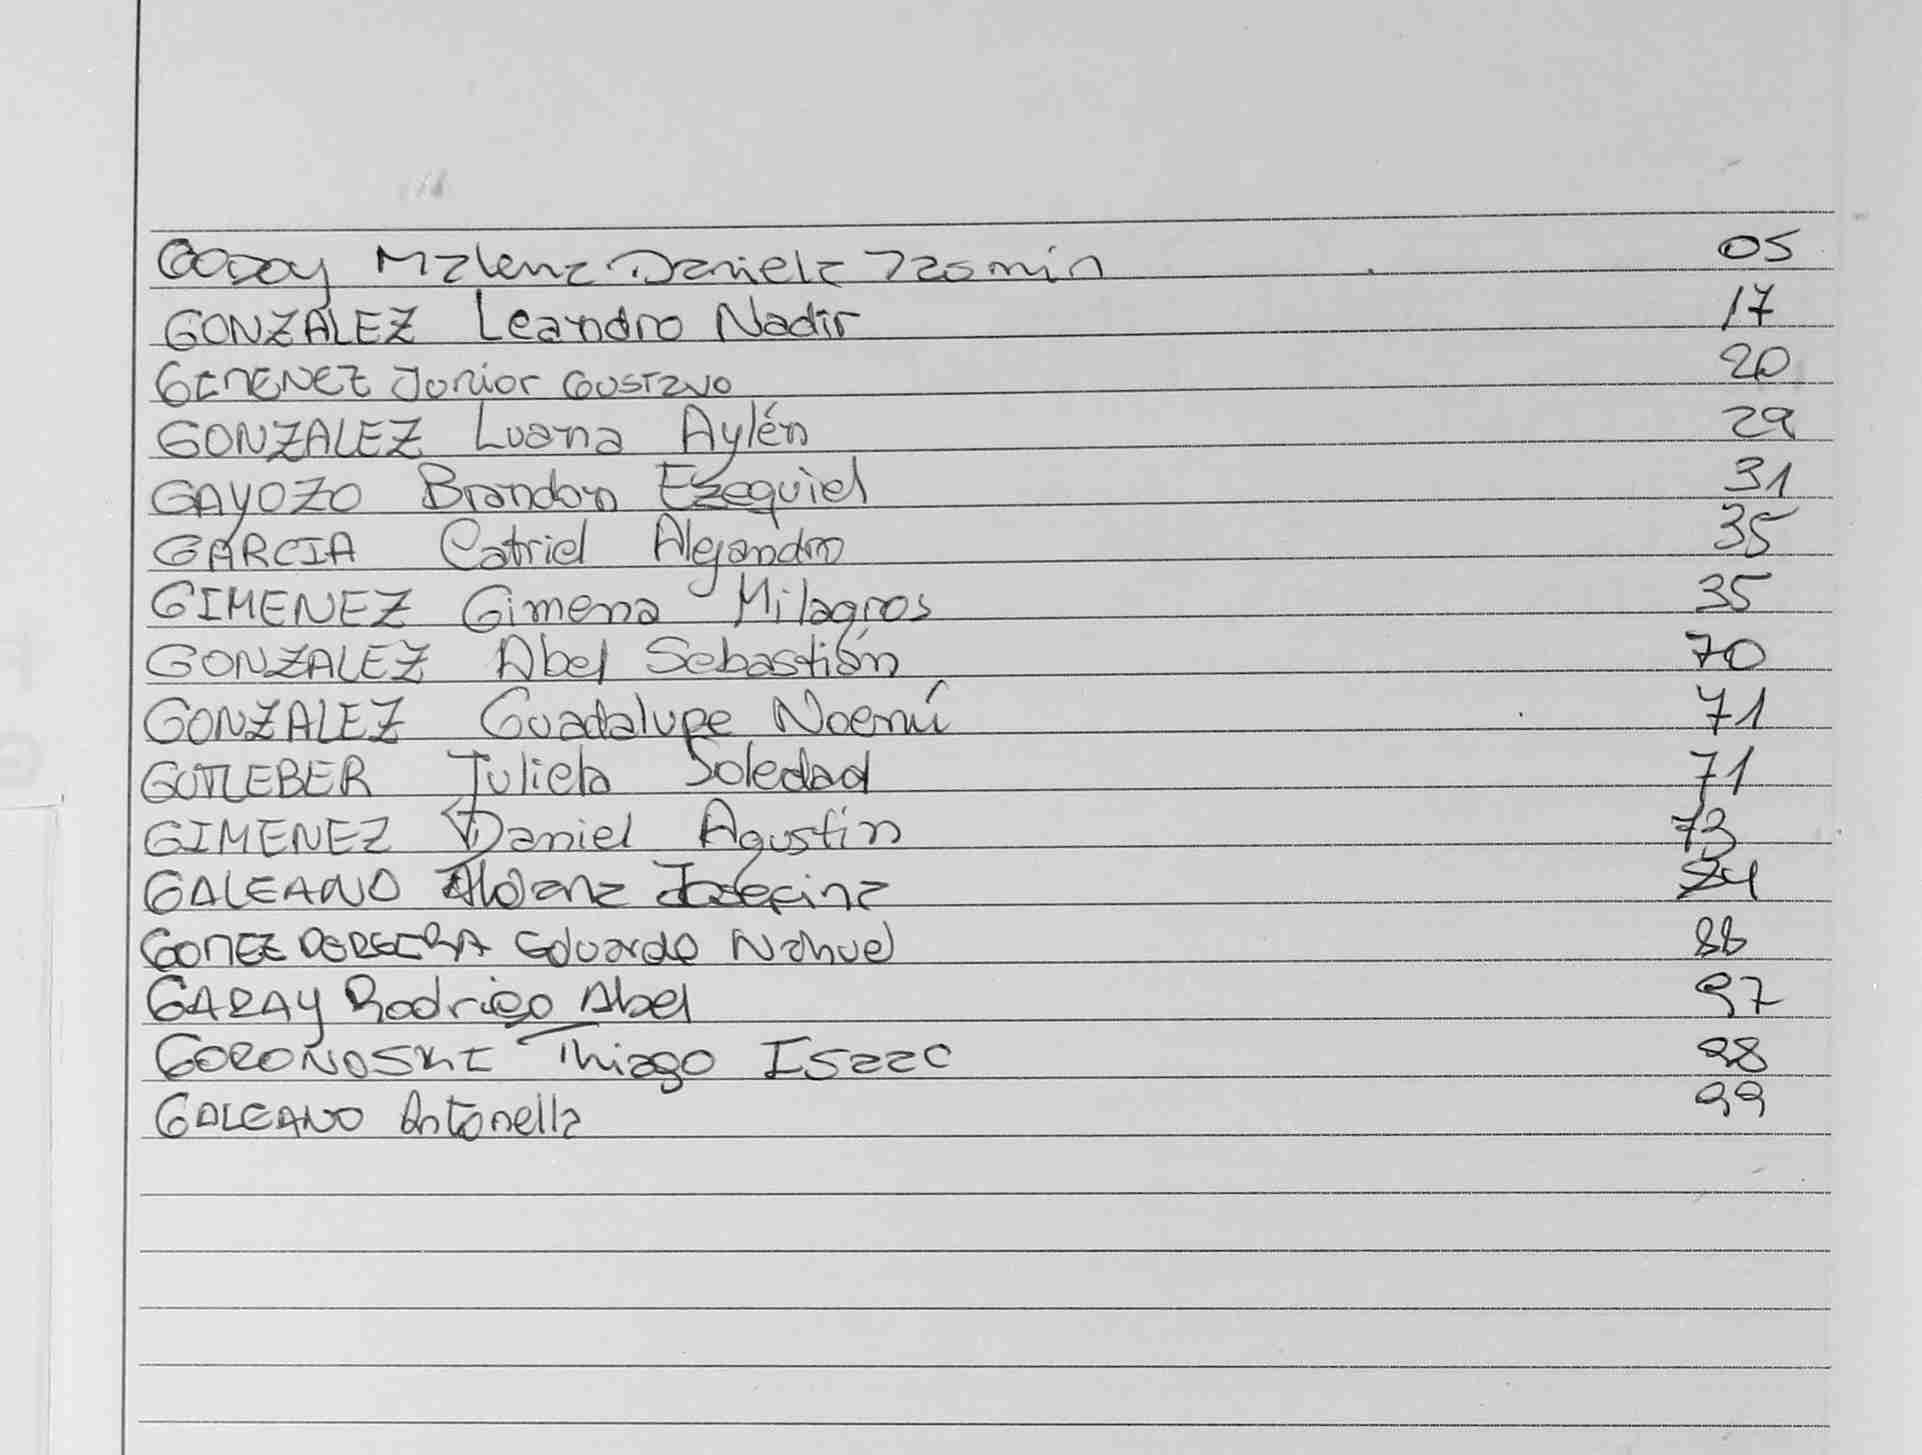 GODOY Malena Daniela Jasmin 05
GONZALEZ Leandro Nadir 17
GIMENEZ Junior Gustavo 20
GONZALEZ Luana Aylén 29
GAYOZO Brandon Ezequiel 31
GARCIA Catriel Alejandro 35
GIMENEZ Gimena Milagros 35
GONZALEZ Abel Sebastián 70
GONZALEZ Guadalupe Noemí 71
GOTLEBER Julieta Soledad 71
GIMENEZ Daniel Agustin 73
GALEANO Aldana Josefina
GOMEZ PEREIRA Eduardo Nahuel 88
GARAY Rodrigo Abel 97
GORONOSKI Thiago Isaac 98
GALEANO Antonella 99